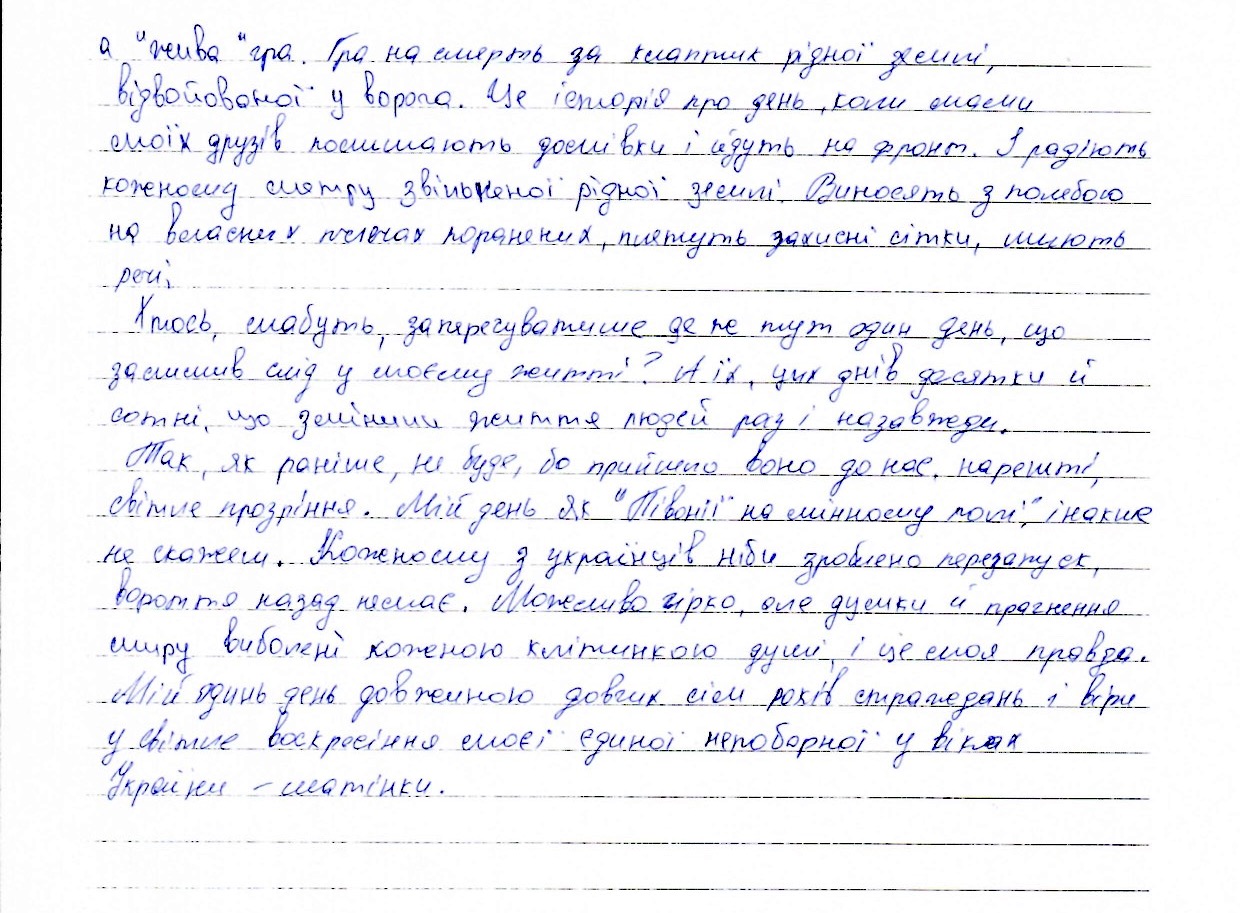 а "жива" гра. Гра на смерть за клаптик рідної землі,
відвойованої у ворога. Це історія про день, коли мами
моїх друзів полишають домівки і йдуть на фронт. І радіють
кожному метру звільненої рідної землі. Виносять з полябою
на власних плечах поранених, плетуть захисні сітки, шиють
речі.
Хтось, мабуть, заперечуватиме де не тут один день, що
залишив слід у моєму житті? А їх, цих днів десятки й
сотні, що змінили життя людей раз і назавжди.
Так, як раніше, не буде, бо прийшло воно до нас, нарешті,
світле прозріння. Мій день як "Півонії на мінному полі", інакше
не скажеш. Кожному з українців ніби зроблено перезапуск,
вороття назад немає. Можливо гірко, але думки й прагнення
миру виболені кожною клітинкою душі, і це моя правда.
Мій один день довжиною довгих сім років страждань і віри
у світле воскресіння моєї єдиної непоборної у віках
України – матінки.